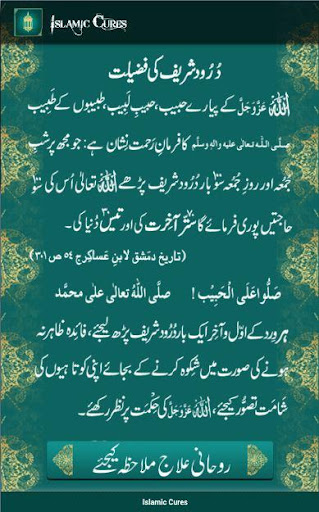 Islamic Cures
دُرُود شریف کی فضیلت
اللہ عَزَّوَجَلَّ کے پیارے حبیب، حبیبِ لبیب، طبیبوں کے طبیب
صلَّی اللہ تعالٰی علیہ واٰلہٖ وسلَّم کا فرمانِ رَحمت نِشان ہے: جو مجھ پر شبِ
جُمُعہ اور روزِ جُمُعہ سَو بار دُرُود شریف پڑھے اللہ تعالیٰ اُس کی سَو
حاجتیں پوری فرمائے گا ستّر آخرت کی اور تیس دُنیا کی۔
(تاریخ دمَشق لابنِ عَساکِر ج ٥٤ ص ٣٠١)
صَلُّوا عَلَی الْحَبِیْب ! صلَّی اللہُ تعالٰی علٰی محمَّد
ہر ورد کے اوّل و آخر ایک بار دُرُود شریف پڑھ لیجئے، فائدہ ظاہر نہ
ہونے کی صورت میں شکوہ کرنے کے بجائے اپنی کوتاہیوں کی
شامَت تصوُّر کیجئے، اللہ عَزَّوَجَلَّ کی حِکمت پر نظر رکھئے۔
روحانی علاج ملاحظہ کیجئے
Islamic Cures